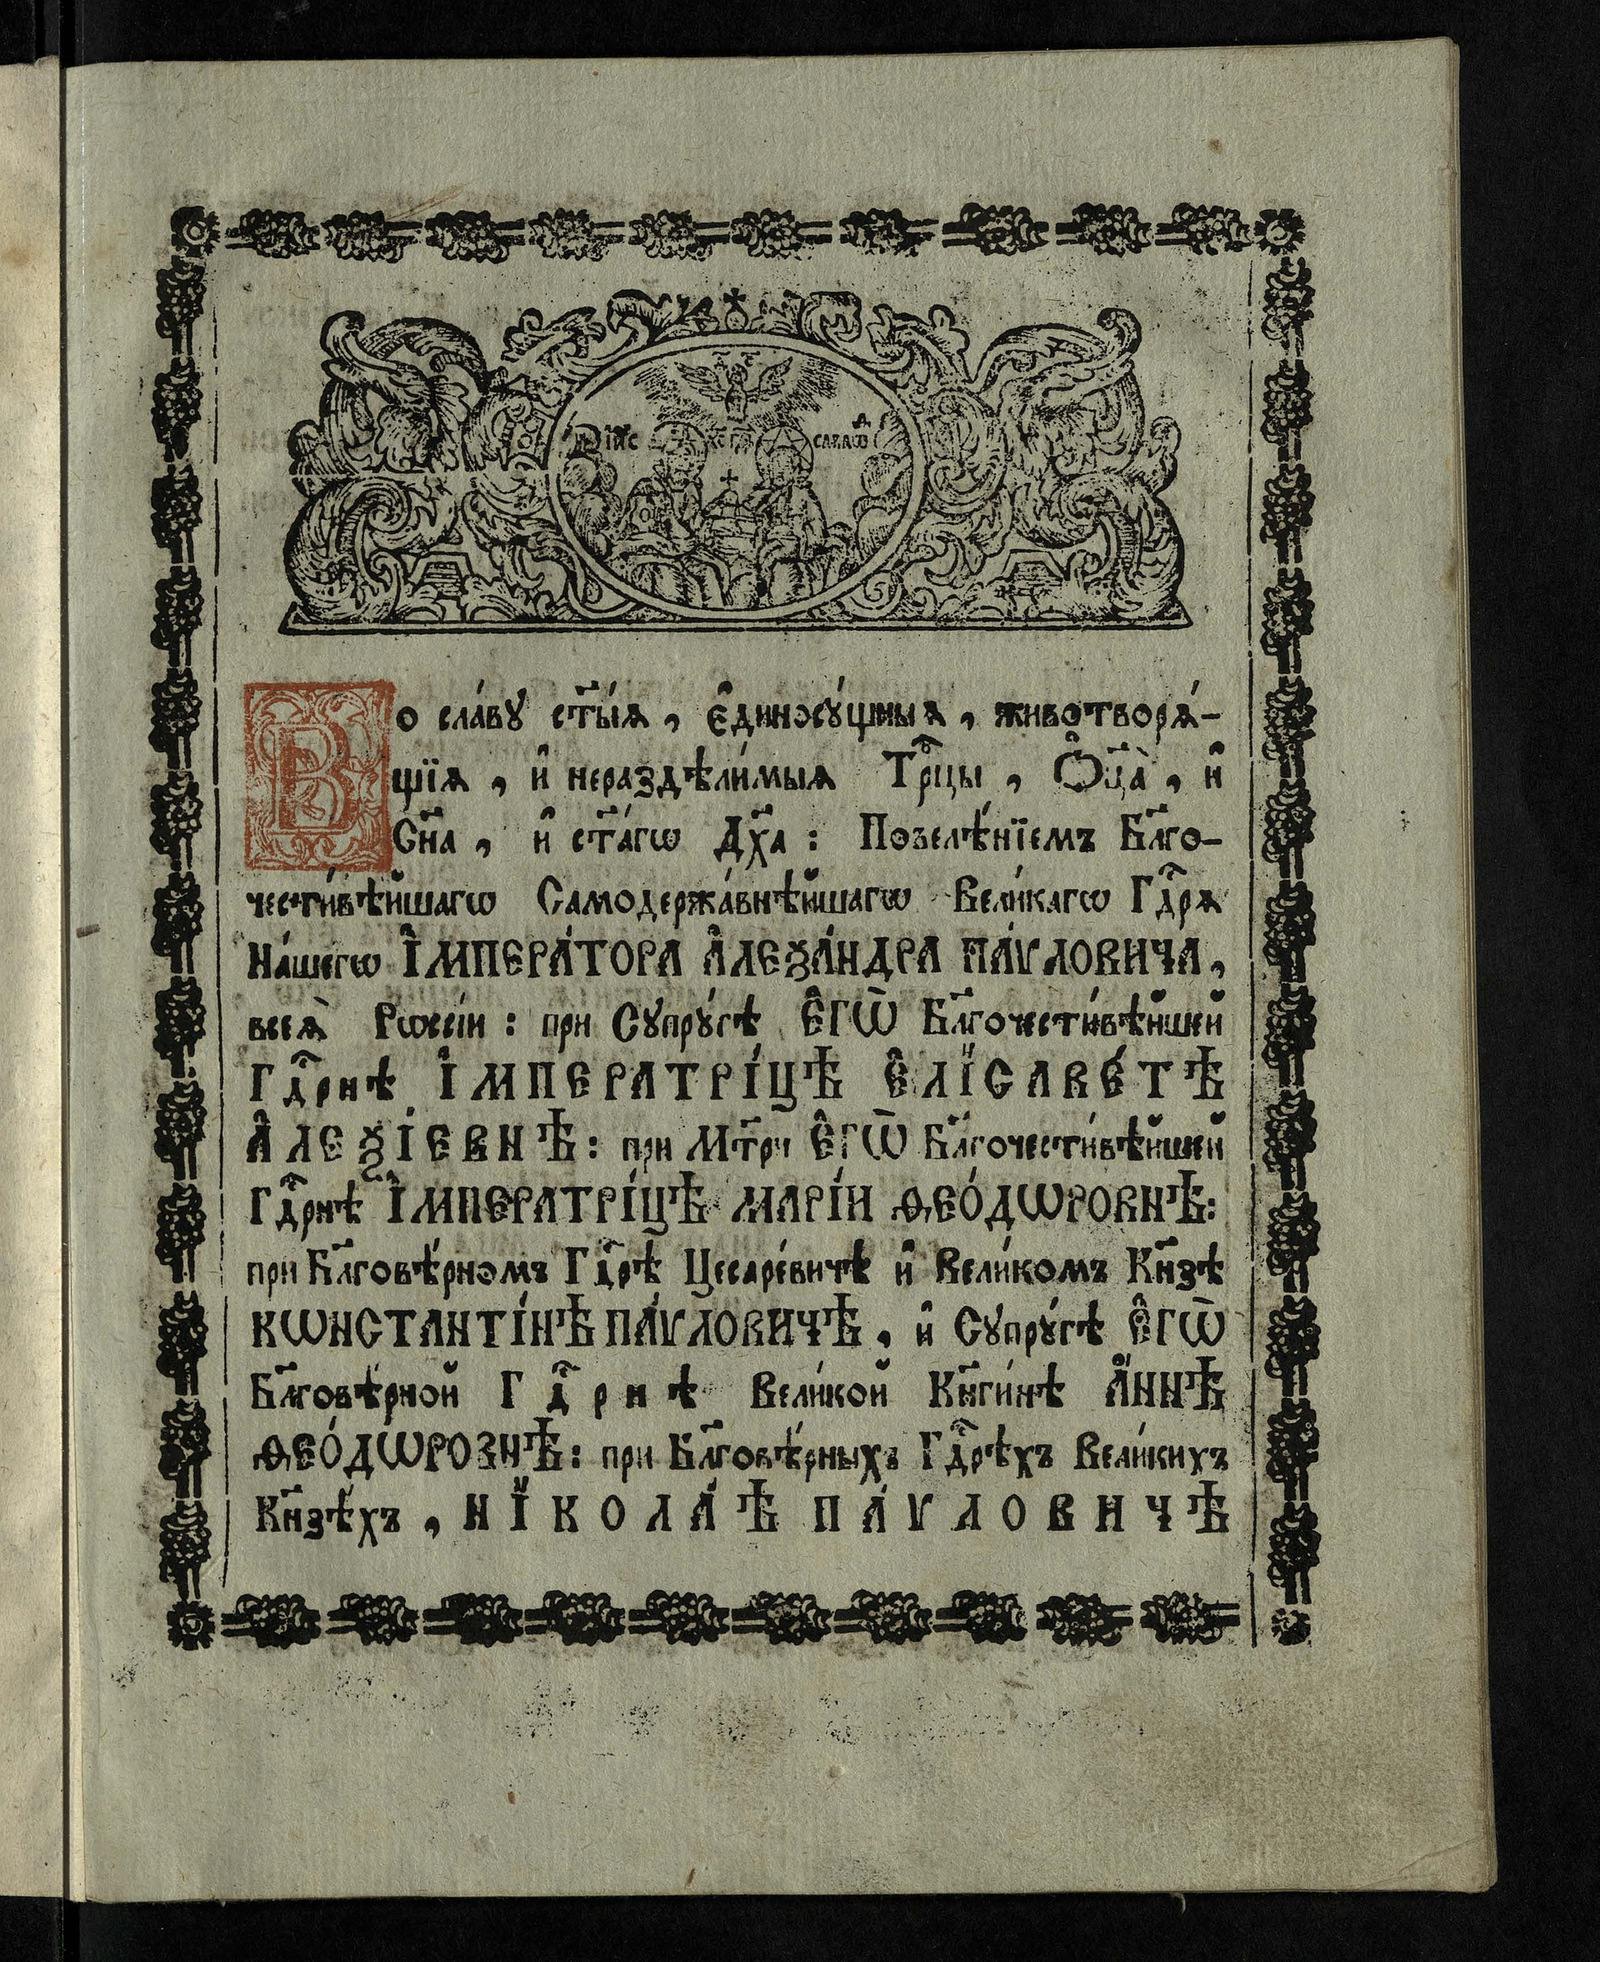 І҃И҃С Х҃С
САВАѠѲ
Во сла́вꙋ ст҃ы́ѧ, є҆диносꙋ́щныѧ, животворѧ́-
щїѧ, и҆ нераздѣли́мыѧ Трⷪ҇цы, Ѻ҆ц҃а̀, и҆
Сн҃а, и҆ ст҃а́гѡ Дх҃а: Повелѣ́нїемъ Бл҃го-
чести́вѣйшагѡ Самодержа́внѣйшагѡ Вели́кагѡ Гдⷭ҇рѧ
На́шегѡ І҆МПЕРА́ТОРА А҆ЛЕѮА́НДРА ПА́ѴЛОВИЧА,
всеѧ̀ Рѡссі́и: при Сꙋпрꙋ́гѣ Є҆ГѠ̀ Бл҃гочести́вѣйшей
Гдⷭ҇рнѣ І҆МПЕРАТРІ́ЦѢ Є҆ЛІСАВЕ́ТѢ
А҆ЛЕѮІ́ЕВНѢ: при Мт҃ри Є҆ГѠ̀ Бл҃гочести́вѣйшей
Гдⷭ҇рнѣ І҆МПЕРАТРІ́ЦѢ МАРІ́И ѲЕО́ДѠРОВНѢ:
при Бл҃говѣ́рномъ Гдⷭ҇рѣ Цесаре́вичѣ и҆ Вели́комъ Кн҃зѣ
КѠНСТАНТІ́НѢ ПА́ѴЛОВИЧѢ, и҆ Сꙋпрꙋ́гѣ Є҆ГѠ̀
Бл҃говѣ́рной Гдⷭ҇рнѣ Вели́кой Кн҃ги́нѣ А҆́ННѢ
ѲЕО́ДѠРОВНѢ: при Бл҃говѣ́рныхъ Гдⷭ҇рѣхъ Вели́кихъ
Кн҃зѣхъ, НЇКОЛА́Ѣ ПА́ѴЛОВИЧѢ